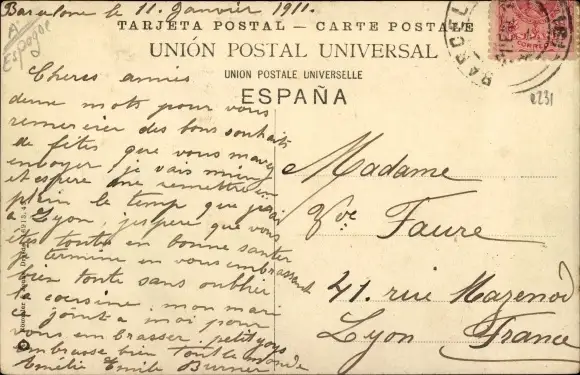 Barcelone le 11 Janvier 1911.
TARJETA POSTAL - CARTE POSTALE
UNIÓN POSTAL UNIVERSAL
UNION POSTALE UNIVERSELLE
ESPAÑA
Espagne
0231
Cheres amies
deux mots pour vous
remercier des bons souhaits
de fêtes que vous mavez
envoyer je vais mieux
et espere me remettre en
plein le temp que j'irai
a Lyon, j'espere que vous
êtes toute en bonne santer
je termine en vous embrassant
bien toute sans oublier
la cousine. mon mari
ce joint a moi pour
vous embrasser, petit
embrasse bien tout le monde
Amélie Emile Burner
Madame
Vve Faure
41. rue Mazenod
Lyon France